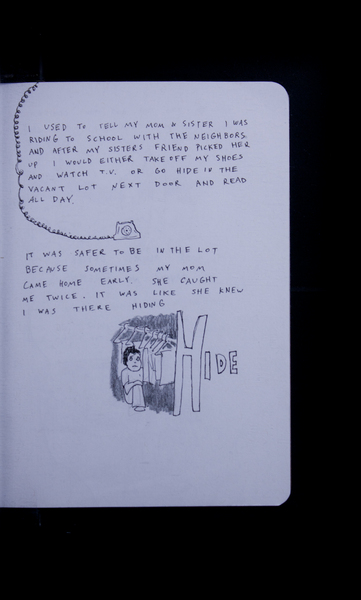 I USED TO TELL MY MOM & SISTER I WAS
RIDING TO SCHOOL WITH THE NEIGHBORS.
AND AFTER MY SISTERS FRIEND PICKED HER
UP I WOULD EITHER TAKE OFF MY SHOES
AND WATCH T.V. OR GO HIDE IN THE
VACANT LOT NEXT DOOR AND READ
ALL DAY.
IT WAS SAFER TO BE IN THE LOT
BECAUSE SOMETIMES MY MOM
CAME HOME EARLY. SHE CAUGHT
ME TWICE. IT WAS LIKE SHE KNEW
I WAS THERE HIDING
HIDE